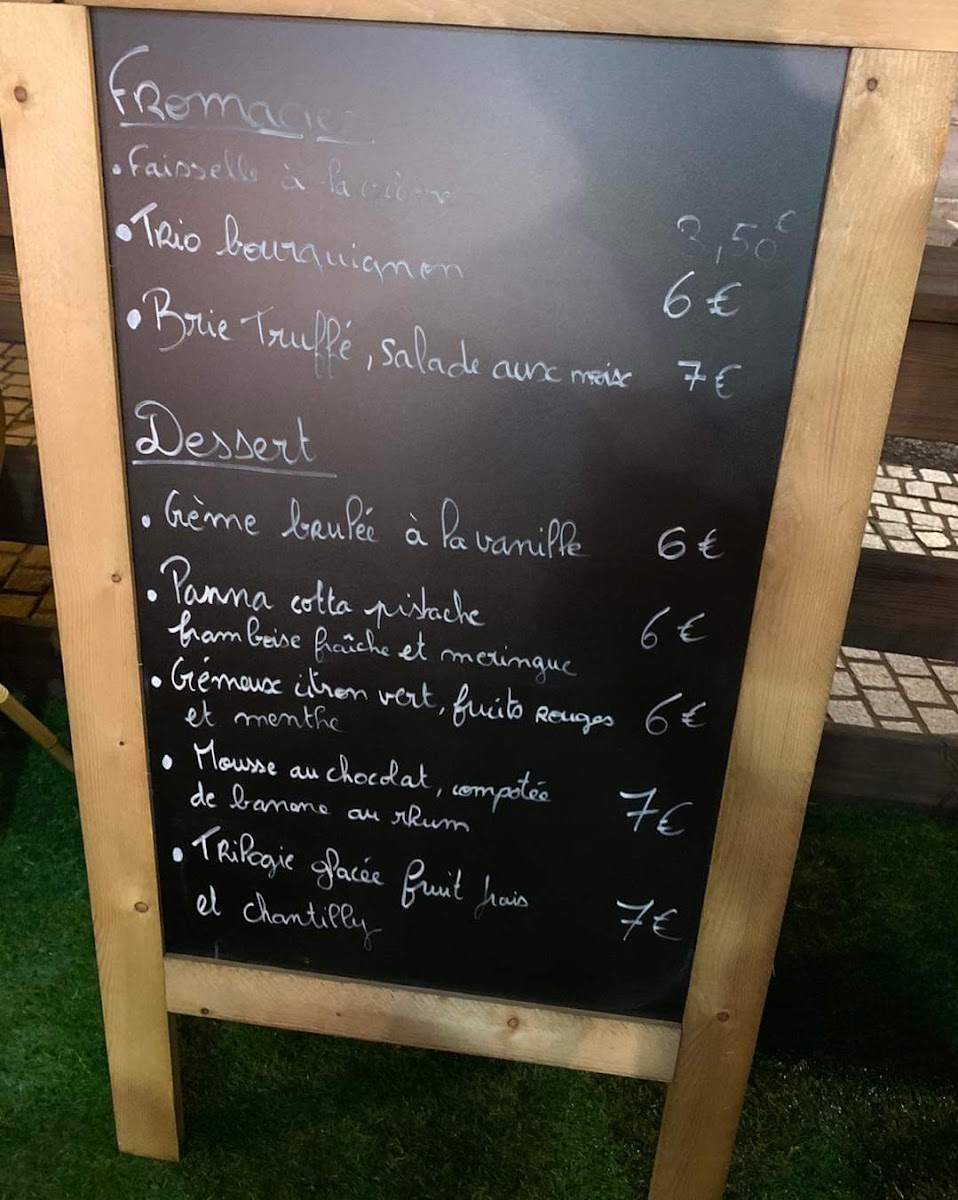 Fromages
• Faisselle à la crème 3,50€
• Trio bourguignon 6€
• Brie Truffé, salade aux noix 7€
Dessert
• Crème brulée à la vanille 6€
• Panna cotta pistache 6€
framboise fraîche et meringue
• Crémeux citron vert, fruits rouges 6€
et menthe
• Mousse au chocolat, compotée 7€
de banane au rhum
• Trilogie glacée fruit frais
et chantilly 7€